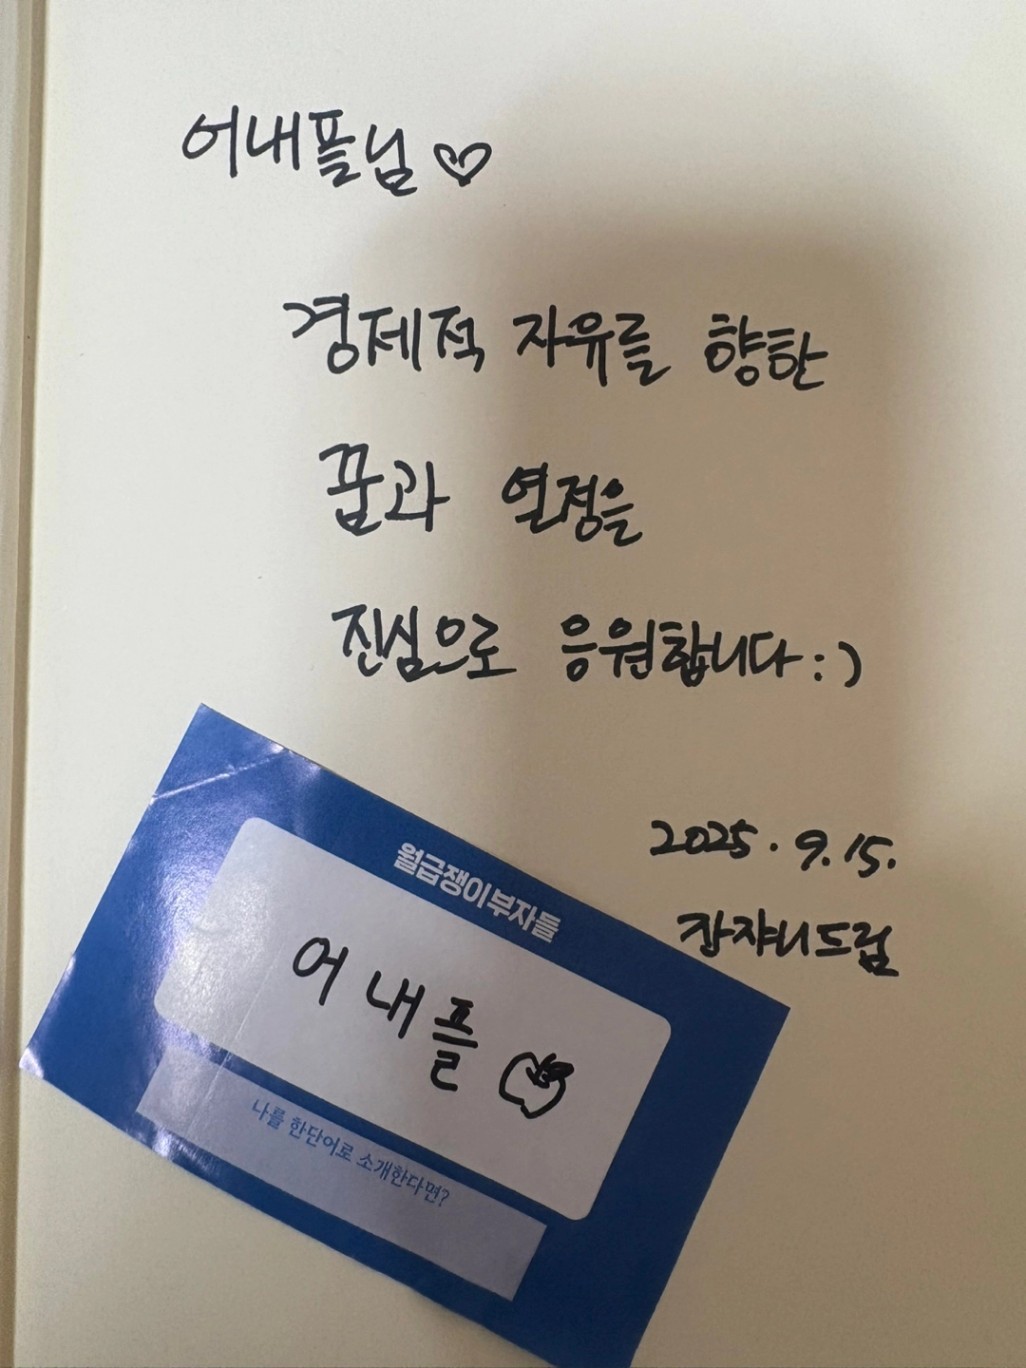 어내플님♡
경제적 자유를 향한
꿈과 열정을
진심으로 응원합니다:)
2025. 9. 15.
잠쟈니드림
월급쟁이부자들
어내플
나를 한단어로 소개한다면?